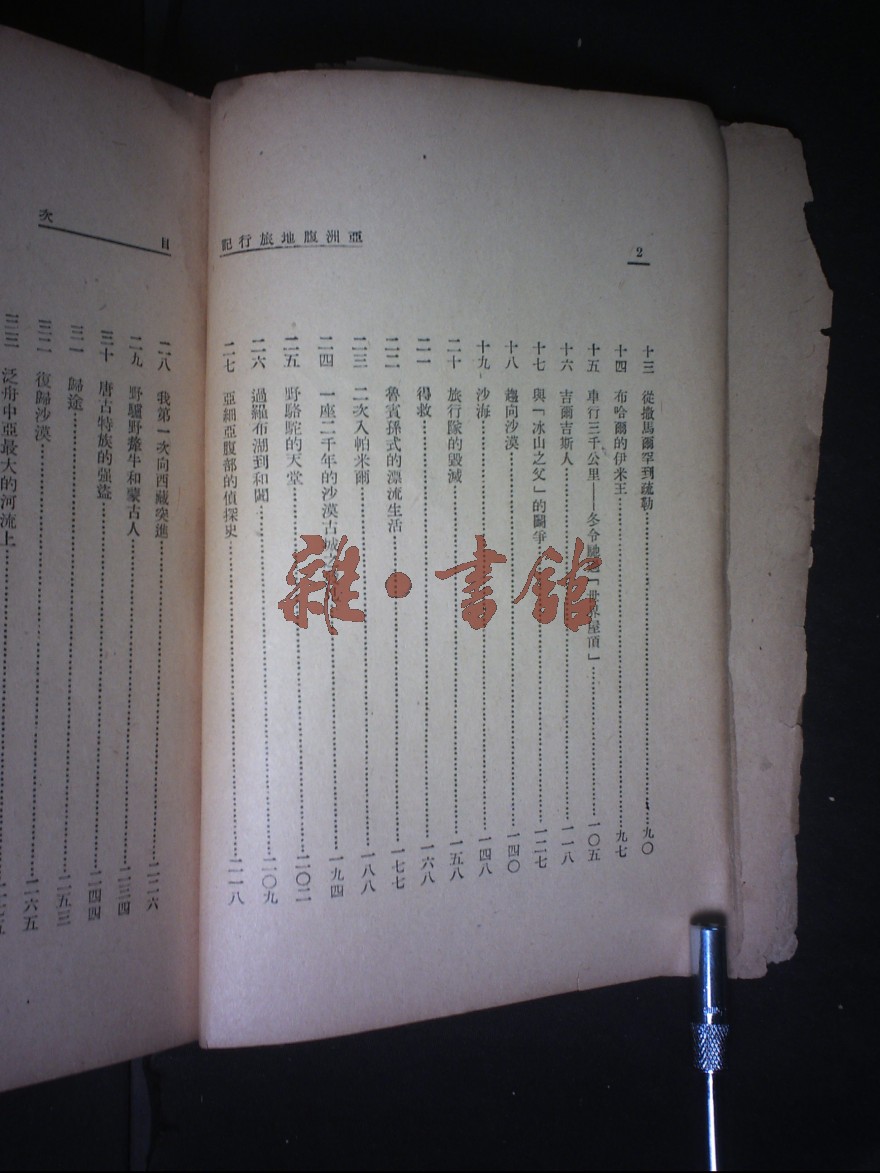 亞洲腹地旅行記
2
十三 從撒馬爾罕到疏勒……九〇
十四 布哈爾的伊米王……九七
十五 車行三千公里——冬令馳「世界屋頂」……一〇五
十六 吉爾吉斯人……一一八
十七 與「冰山之父」的鬭爭……一二七
十八 趨向沙漠……一四〇
十九 沙海……一四八
二十 旅行隊的毀滅……一五八
二一 得救……一六八
二二 魯賓孫式的漂流生活……一七七
二三 二次入帕米爾……一八八
二四 一座二千年的沙漠古城……一九四
二五 野駱駝的天堂……二〇二
二六 過羅布湖到和闐……二〇九
二七 亞細亞腹部的偵探史……二一八
目次
二八 我第一次向西藏突進……二二六
二九 野驢野犛牛和蒙古人……二三四
三十 唐古特族的强盜……二四四
三一 歸途……二五三
三二 復歸沙漠……二六五
三三 泛舟中亞最大的河流上
雜·書館